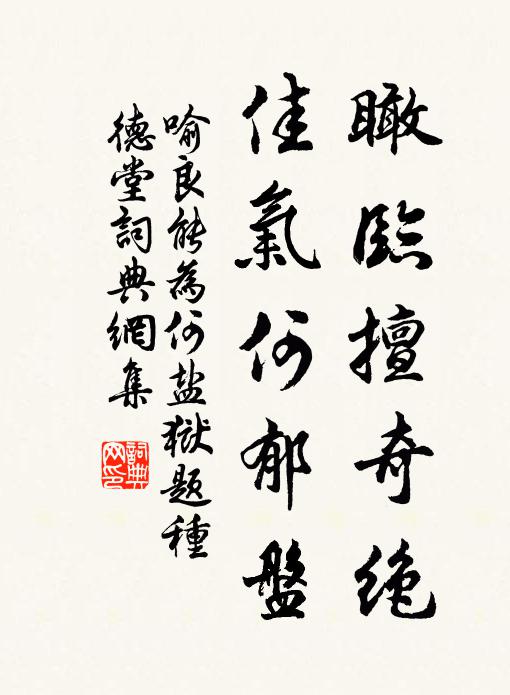 瞰臨擅奇絶
佳氣何郁盤
喻良能為何盐獄題種
德堂詞典網集
詞典
网印